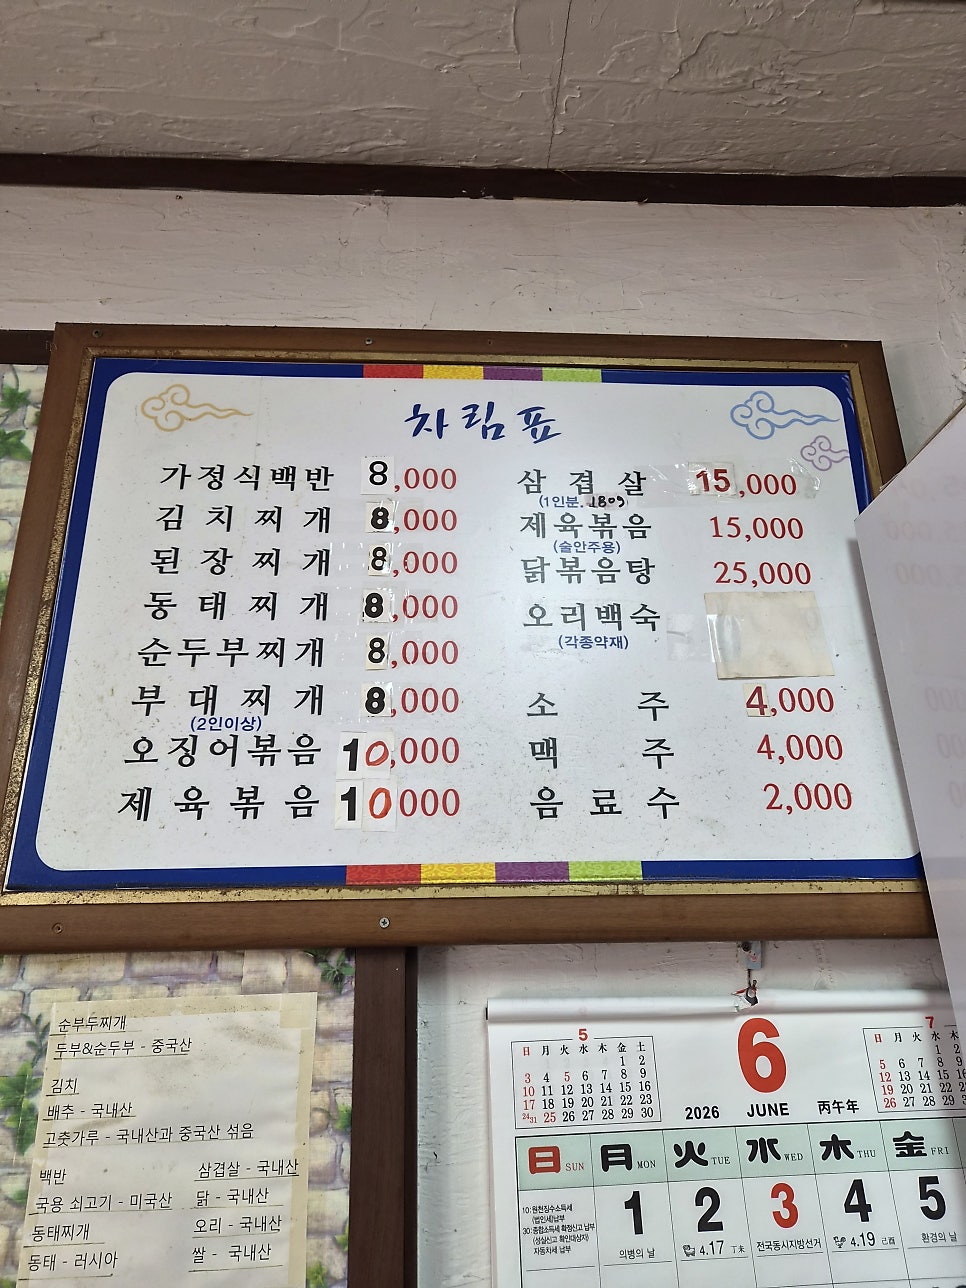 차림표
가정식백반 8,000
김치찌개 8,000
된장찌개 8,000
동태찌개 8,000
순두부찌개 8,000
부대찌개 8,000
(2인이상)
오징어볶음 10,000
제육볶음 10000
삼겹살 15,000
(1인분. 180g)
제육볶음 15,000
(술안주용)
닭볶음탕 25,000
오리백숙
(각종약재)
소주 4,000
맥주 4,000
음료수 2,000
순부두찌개
두부&순두부 - 중국산
김치
배추 - 국내산
고춧가루 - 국내산과 중국산 섞음
백반
국용 쇠고기 - 미국산
동태찌개
동태 - 러시아
삼겹살 - 국내산
닭 - 국내산
오리 - 국내산
쌀 - 국내산
5
日 月 火 水 木 金 土
1 2
3 4 5 6 7 8 9
10 11 12 13 14 15 16
17 18 19 20 21 22 23
24/31 25 26 27 28 29 30
6
2026 JUNE 丙午年
7
日 月 火 水 木
1 2
5 6 7 8 9
12 13 14 15 16
19 20 21 22 23
26 27 28 29 30
日 SUN 月 MON 火 TUE 水 WED 木 THU 金 FRI
1 2 3 4 5
10:원천징수소득세
(법인세)납부
30:종합소득세 확정신고 납부
(성실신고 확인대상자)
자동차세 납부
의병의 날
4.17 丁未
전국동시지방선거
4.19 己酉
환경의 날